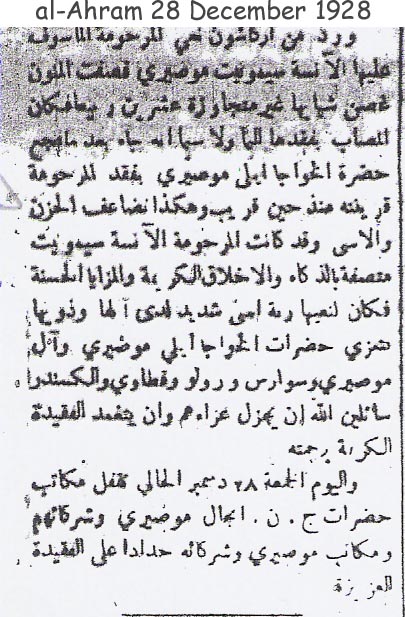 al-Ahram 28 December 1928
ورد من اركاشون نعي المرحومة المأسوف
عليها الآنسة سيدويت موصيري قصفت المنون
غصن شبابها غير متجاوزة عشرين ربيعا فكان
المصاب بفقدها اليما ولا سيما انه جاء بعد ما فجع
حضرة الخواجا ايلي موصيري بفقد المرحومة
قرينته منذ حين قريب وهكذا تضاعف الحزن
والاسى وقد كانت المرحومة الآنسة سيدويت
متصفة بالذكاء والاخلاق الكريمة والمزايا الحسنة
فكان لنعيها رنة اسى شديد لدى آلها وذويها
نعزي حضرات الخواجا ايلي موصيري وآل
موصيري وسوارس ورولو وقطاوي والكسندرا
سائلين الله ان يجزل عزاءهم وان يتغمد الفقيدة
الكريمة برحمته
واليوم الجمعة ٢٨ دسمبر الحالي تقفل مكاتب
حضرات ج . ن . انجال موصيري وشركائهم
ومكاتب موصيري وشركائه حدادا على الفقيدة
العزيزة